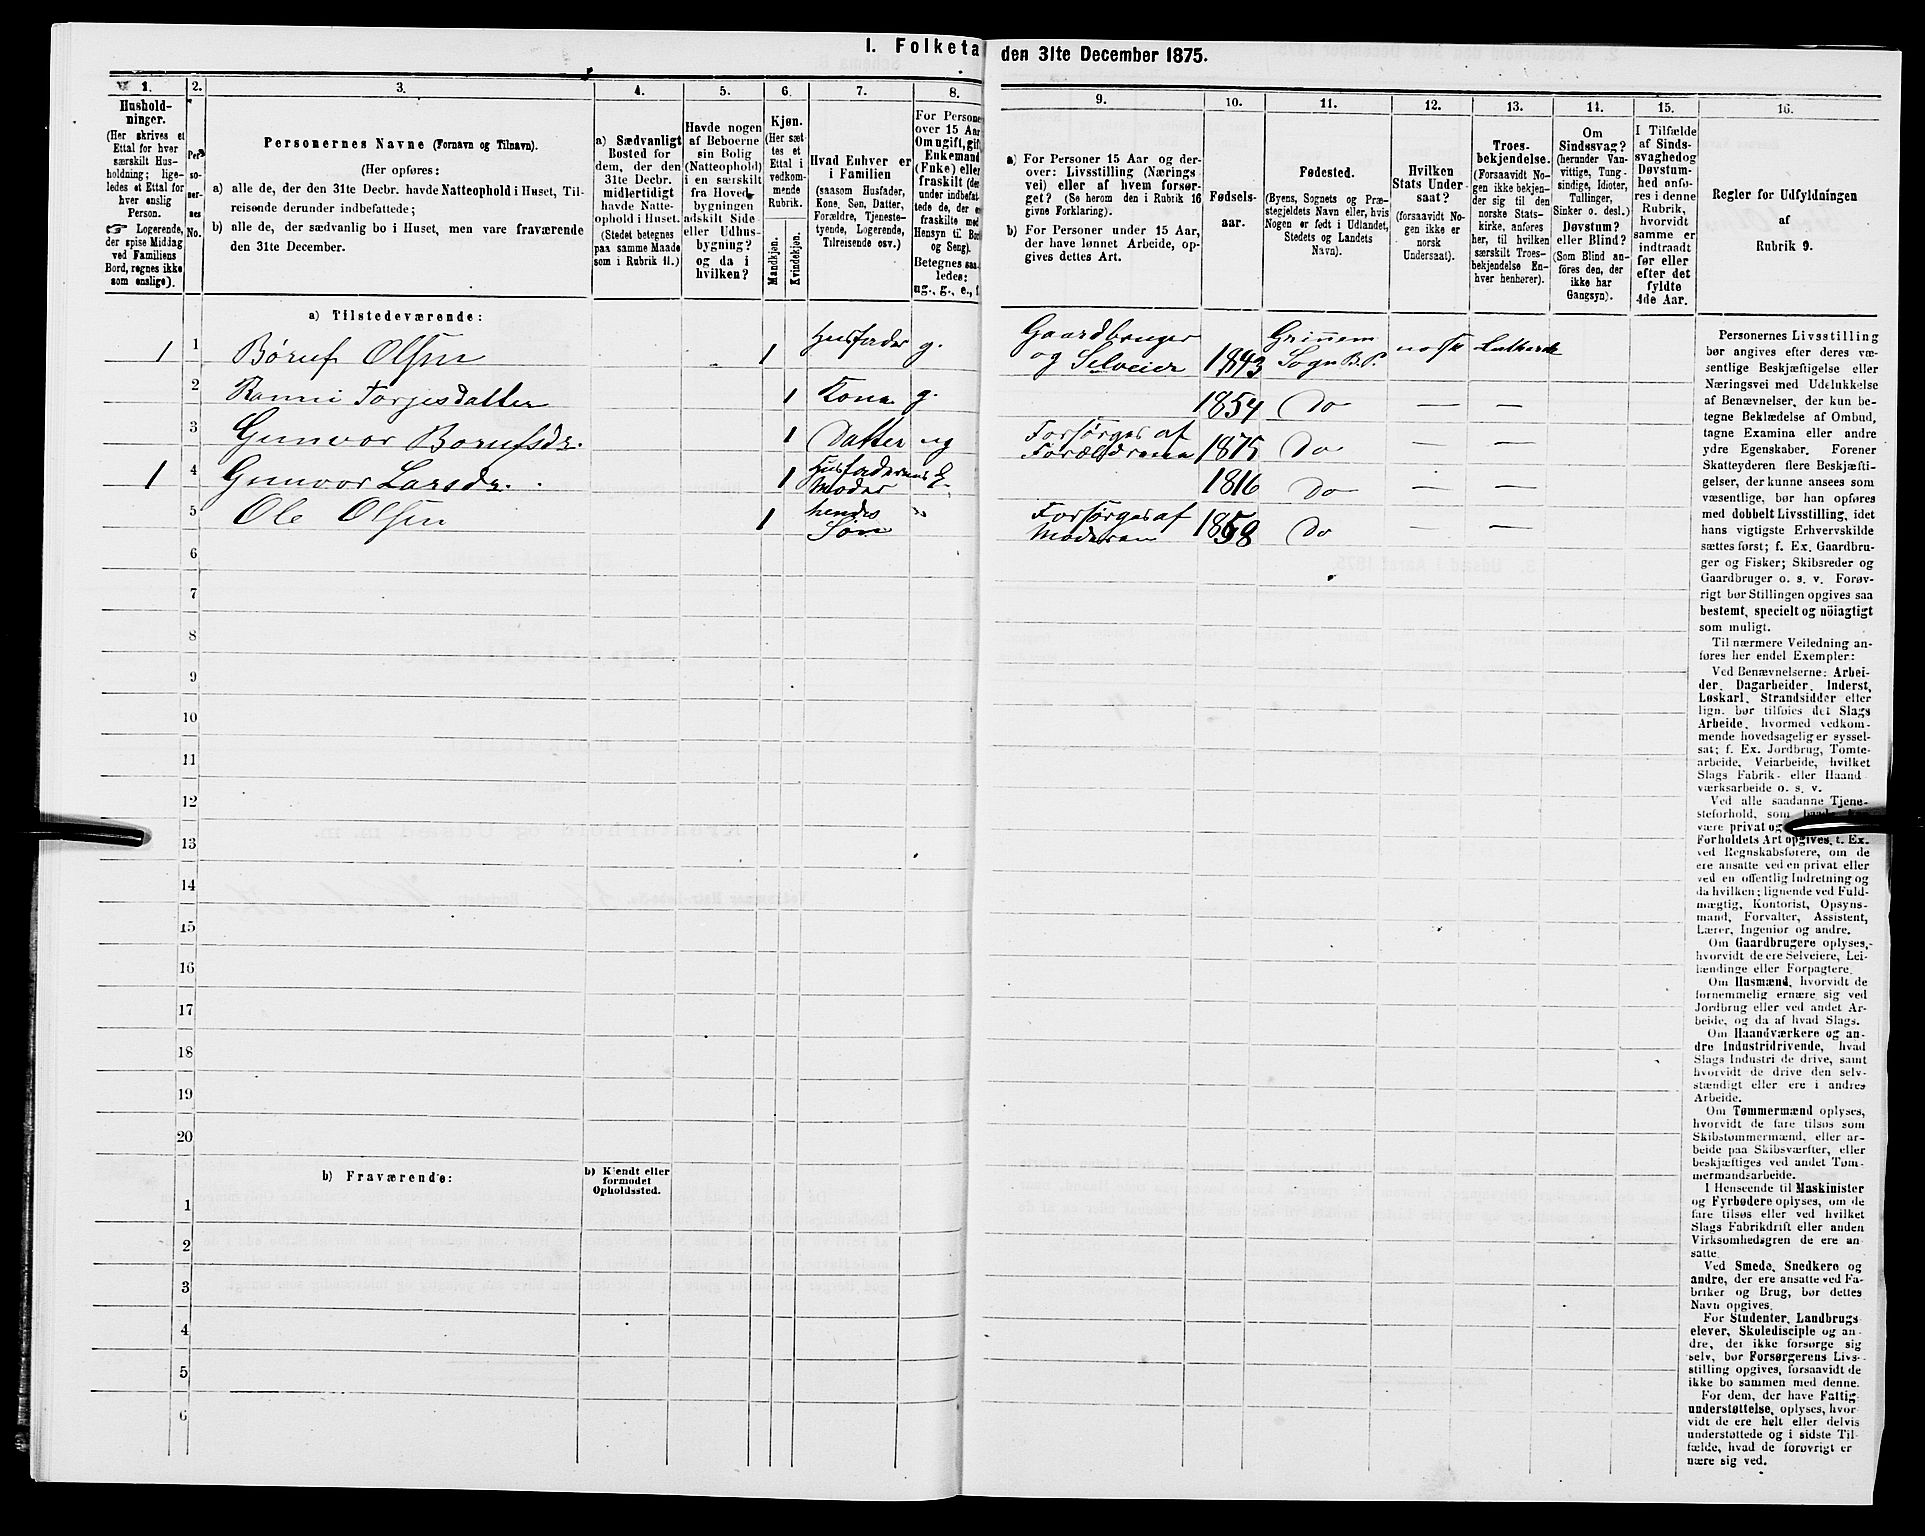 I. Folketa den 31te December 1875.
1.
Hushold-
ninger.
(Her skrives et
Ettal for hver
særskilt Hus-
holdning; lige-
ledes et Ettal for
hver enslig
Person.
☞ Logerende,
der spise Middag
ved Familiens
Bord, regnes ikke
som enslige).
2.
Per-
so-
ner-
nes
No.
3.
Personernes Navne (Fornavn og Tilnavn).
(Her opføres:
a) alle de, der den 31te Decbr. havde Natteophold i Huset, Til-
reisende derunder indbefattede;
b) alle de, der sædvanlig bo i Huset, men vare fraværende
den 31te December.
4.
a) Sædvanligt
Bosted for
dem, der den
31te Decbr.
midlertidigt
havde Natte-
ophold i Huset.
(Stedet betegnes
paa samme Maade
som i Rubrik 11.)
5.
Havde nogen
af Beboerne
sin Bolig
(Natteophold)
i en særskilt
fra Hoved-
bygningen
adskilt Side-
eller Udhus-
bygning?
og da i
hvilken?
6.
Kjøn.
(Her sæt-
tes et
Ettal i
vedkom-
mende
Rubrik.
Mandkjøn.
Kvindekjøn.
7.
Hvad Enhver er
i Familien
(saasom Husfader,
Kone, Søn, Datter,
Forældre, Tjeneste-
tyende, Logerende,
Tilreisende osv.)
8.
For Persone
over 15 Aar
Om ugift, gift
Enkemand
(Enke) eller
fraskilt (der
under indbefat-
tede de, der e
fraskilte med
Hensyn til Bor
og Seng).
Betegnes saa-
ledes:
ug., g., e., f.
9.
a) For Personer 15 Aar og der-
over: Livsstilling (Nærings-
vei) eller af hvem forsør-
get? (Se herom den i Rubrik 16
givne Forklaring).
b) For Personer under 15 Aar,
der have lønnet Arbeide, op-
gives dettes Art.
10.
Fødsels-
aar.
11.
Fødested.
(Byens, Sognets og Præ-
stegjeldets Navn eller, hvis
Nogen er født i Udlandet,
Stedets og Landets
Navn).
12.
Hvilken
Stats Under-
saat?
(forsaavidt No-
gen ikke er
norsk
Undersaat).
13.
Troes-
bekjendelse.
(Forsaavidt No-
gen ikke bekjen-
der sig til den
norske Stats-
kirke, anføres
her, til hvilken
særskilt Troes-
bekjendelse En-
hver henhører).
14.
Om
Sindssvag?
(herunder Van-
vittige, Tung-
sindige, Idioter,
Tullinger,
Sinker o. desl.)
Døvstum?
eller Blind?
(Som Blind an-
føres den, der
ikke har
Gangsyn).
15.
I Tilfælde
af Sinds-
svaghed og
Døvstum-
hed anfø-
res i denne
Rubrik,
hvorvidt
samme er
indtraadt
før eller
efter det
fyldte
4de Aar.
16.
Regler for Udfyldningen
af
Rubrik 9.
a) Tilstedeværende:
1 1 Børuf Olsen 1 Husfader g. Gaardbruger og Selveier 1843 Grimnem Sogn B.P. norsk Luthersk
2 Ranni Torgesdatter 1 Kone g. 1854 Do — —
3 Gunvor Borufsdr. 1 Datter ug Forsørges af Forældrene 1875 Do — —
1 4 Gunvor Larsdr. 1 Husfaderens Moder E. 1816 Do — —
5 Ole Olsen 1 hendes Søn " Forsørges af Moderen 1858 Do — —
6
7
8
9
10
11
12
13
14
15
16
17
18
19
20
b) Fraværende:
b) Kjendt eller
formodet
Opholdssted.
1
2
3
4
5
6
Personernes Livsstilling
bør angives efter deres væ-
sentlige Beskjæftigelse eller
Næringsvei med Udelukkelse
af Benævnelser, der kun be-
tegne Beklædelse af Ombud,
tagne Examina eller andre
ydre Egenskaber. Forener
Skatteyderen flere Beskjæfti-
gelser, der kunne ansees som
væsentlige, bør han opføres
med dobbelt Livsstilling, idet
hans vigtigste Erhvervskilde
sættes først; f. Ex. Gaardbru-
ger og Fisker; Skibsreder og
Gaardbruger o. s. v. Forøv-
rigt bør Stillingen opgives saa
bestemt, specielt og nöiagtigt
som muligt.
Til nærmere Veiledning an-
føres her endel Exempler:
Ved Benævnelserne: Arbei-
der, Dagarbeider, Inderst,
Løskarl, Strandsidder eller
lign. bør tilføies det Slags
Arbeide, hvormed vedkom-
mende hovedsagelig er syssel-
sat; f. Ex. Jordbrug, Tomte-
arbeide, Veiarbeide, hvilket
Slags Fabrik- eller Haand-
værksarbeide o. s. v.
Ved alle saadanne Tjene-
steforhold, som
være privat og
Forholdets Art opgives, t. Ex.
ved Regnskabsførere, om de
ere ansatte ved en privat eller
ved en offentlig Indretning og
da hvilken; lignende ved Fuld-
mægtig, Kontorist, Opsyns-
mand, Forvalter, Assistent,
Lærer, Ingeniør og andre.
Om Gaardbrugere oplyses,
hvorvidt de ere Selveiere, Lei-
lændinge eller Forpagtere.
Om Husmænd, hvorvidt de
fornemmelig ernære sig ved
Jordbrug eller ved andet Ar-
beide, og da af hvad Slags.
Om Haandværkere og an-
dre Industridrivende, hvad
Slags Industri de drive, samt
hvorvidt de drive den selv-
stændigt eller ere i andres
Arbeide.
Om Tømmermænd oplyses,
hvorvidt de fare tilsøs som
Skibstømmermænd, eller ar-
beide paa Skibsværfter, eller
beskjæftiges ved andet Tøm-
mermandsarbeide.
I Henseende til Maskinister
og Fyrbødere oplyses, om de
fare tilsøs eller ved hvilket
Slags Fabrikdrift eller anden
Virksomhedsgren de ere an-
satte.
Ved Smede, Snedkere og
andre, der ere ansatte ved Fa-
briker og Brug, bør dettes
Navn opgives.
For Studenter, Landbrugs-
elever, Skoledisciple og an-
dre, der ikke forsørge sig
selv, bør Forsørgerens Livs-
stilling opgives, forsaavidt de
ikke bo sammen med denne.
For dem, der have Fattig-
understøttelse, oplyses, hvor-
vidt de ere helt eller delvis
understøttede og i sidste Til-
fælde, hvad de forøvrigt er
nære sig ved.